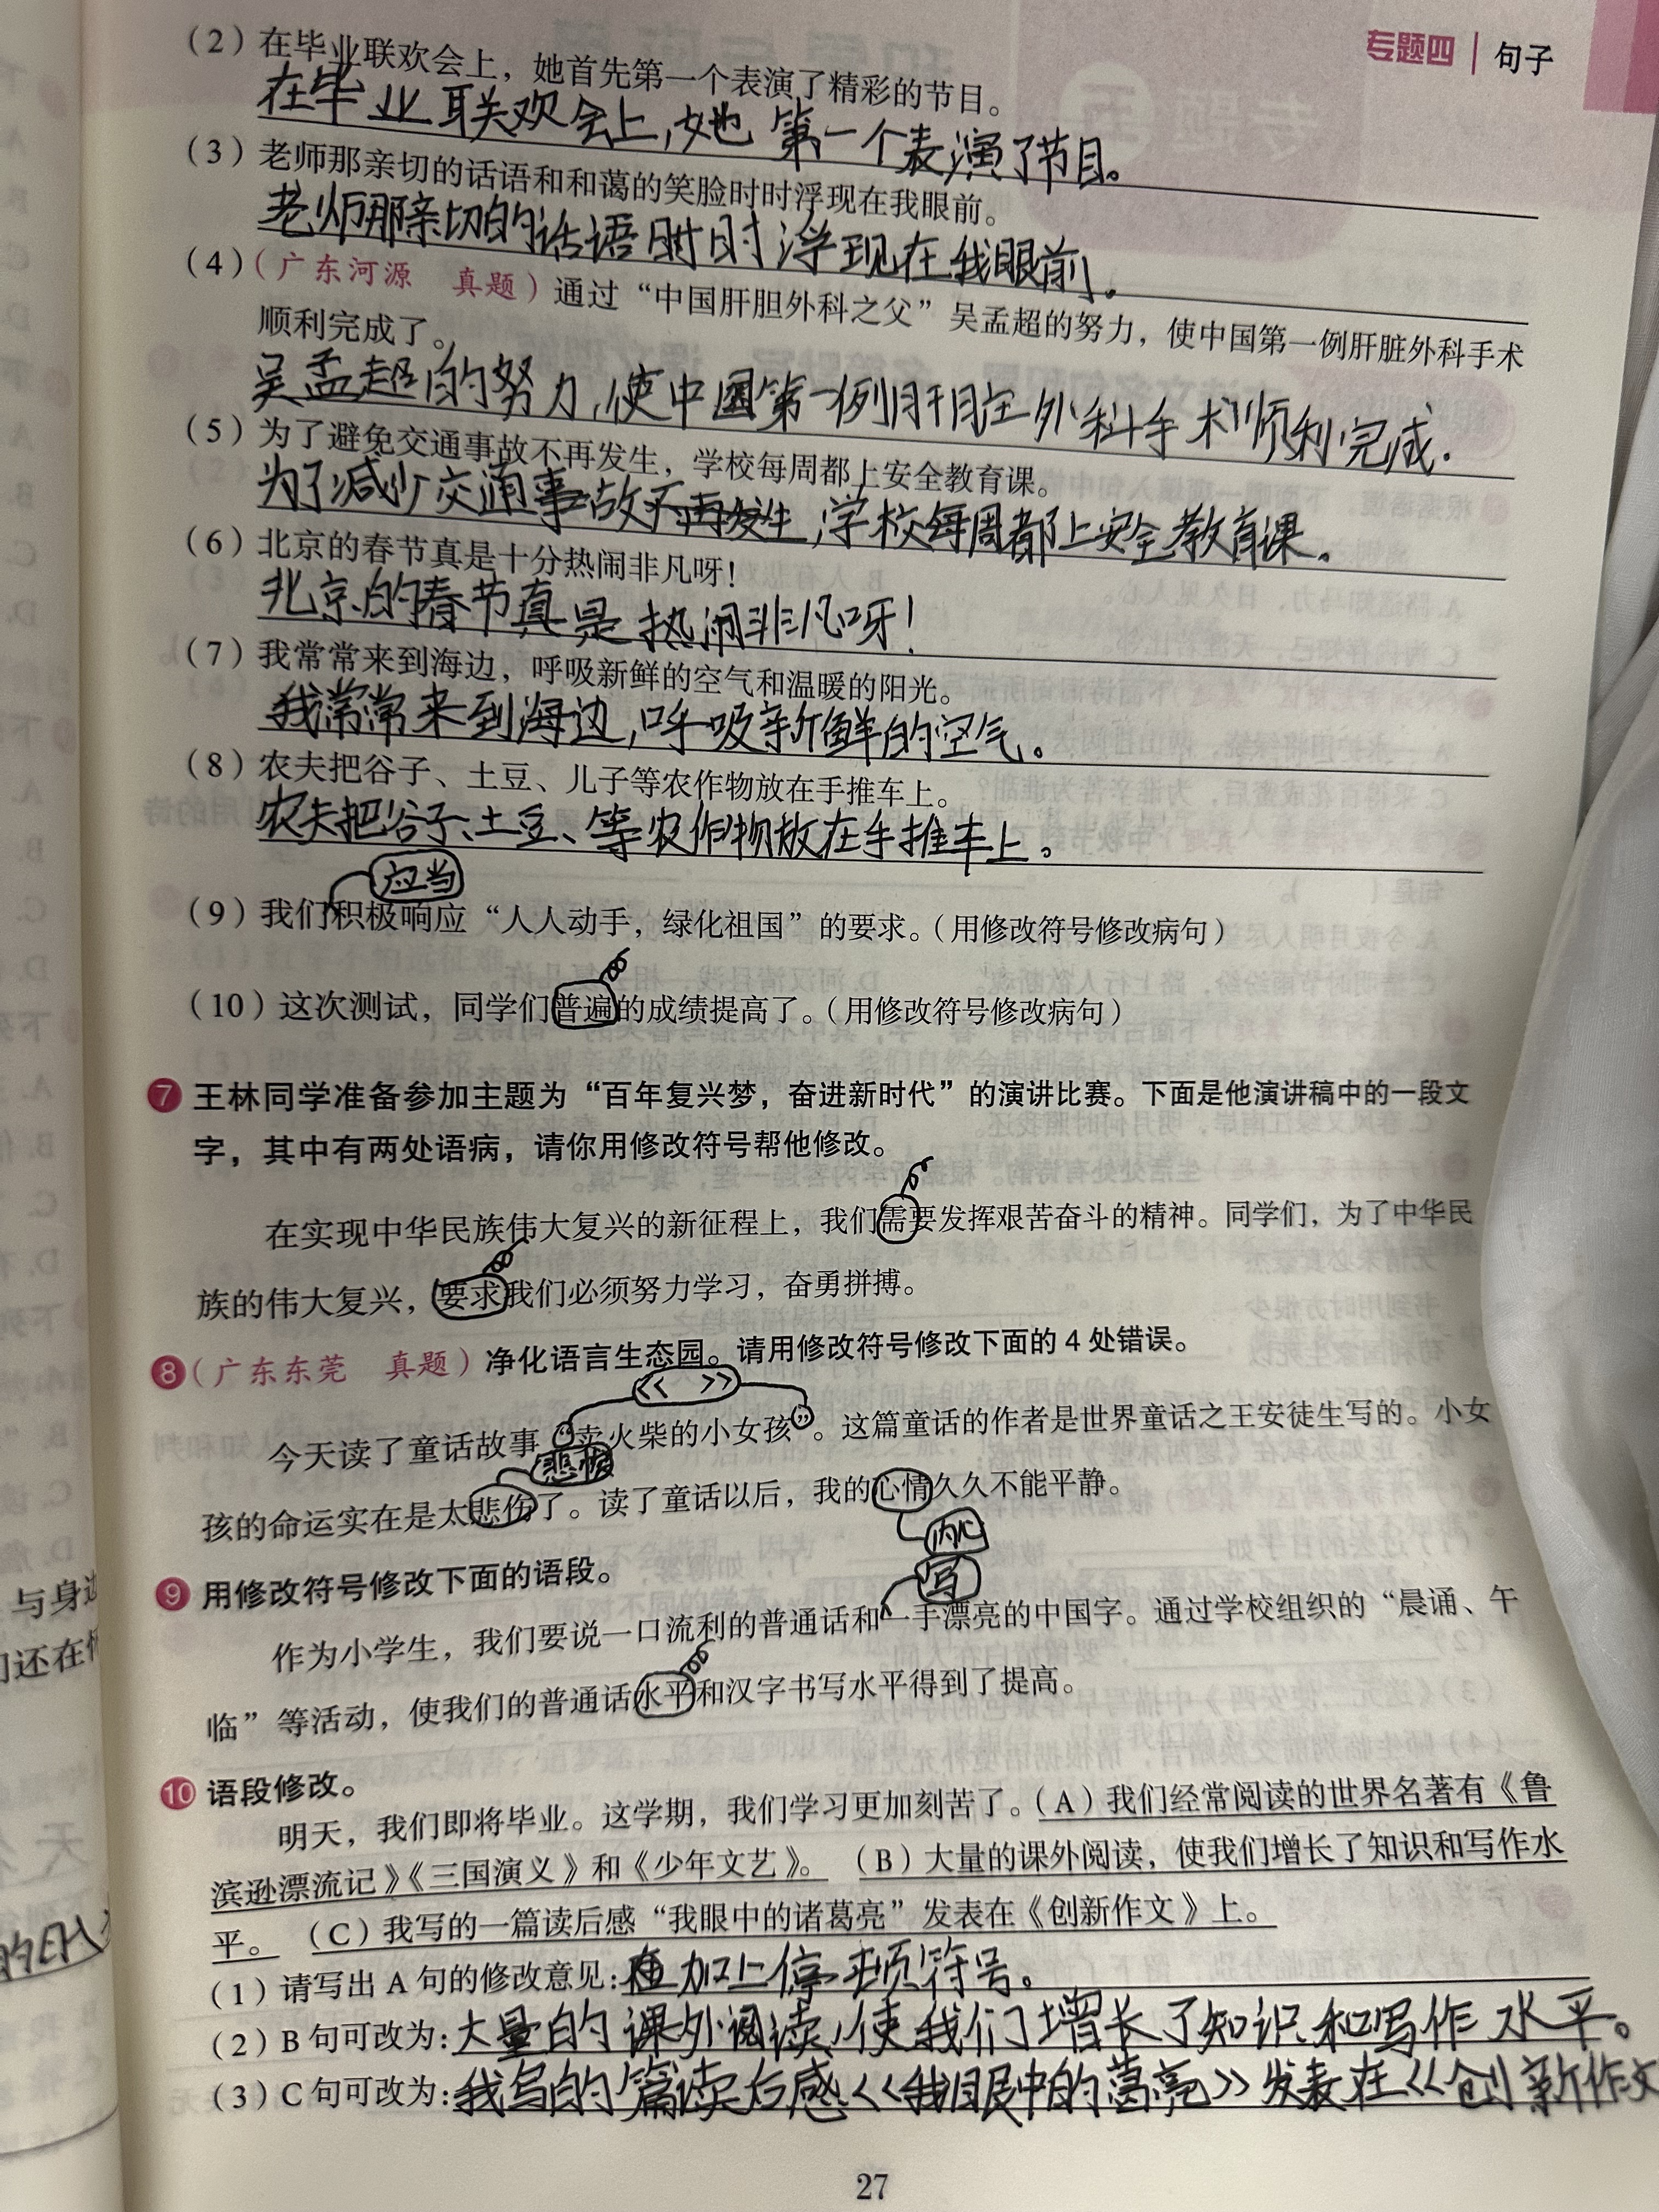 专题四 | 句子
(2) 在毕业联欢会上，她首先第一个表演了精彩的节目。
在毕业联欢会上,她第一个表演了节目。
(3) 老师那亲切的话语和和蔼的笑脸时时浮现在我眼前。
老师那亲切的话语时时浮现在我眼前.
(4)(广东河源 真题) 通过“中国肝胆外科之父”吴孟超的努力，使中国第一例肝脏外科手术
顺利完成了。
吴孟超的努力,使中国第一例肝脏外科手术顺利完成.
(5) 为了避免交通事故不再发生，学校每周都上安全教育课。
为了减少交通事故不再发生,学校每周都上安全教育课。
(6) 北京的春节真是十分热闹非凡呀!
北京的春节真是热闹非凡呀!
(7) 我常常来到海边，呼吸新鲜的空气和温暖的阳光。
我常常来到海边,呼吸新鲜的空气。
(8) 农夫把谷子、土豆、儿子等农作物放在手推车上。
农夫把谷子、土豆、等农作物放在手推车上。
应当
(9) 我们积极响应“人人动手，绿化祖国”的要求。(用修改符号修改病句)
(10) 这次测试，同学们普遍的成绩提高了。(用修改符号修改病句)
7 王林同学准备参加主题为“百年复兴梦，奋进新时代”的演讲比赛。下面是他演讲稿中的一段文
字，其中有两处语病，请你用修改符号帮他修改。
在实现中华民族伟大复兴的新征程上，我们需要发挥艰苦奋斗的精神。同学们，为了中华民
族的伟大复兴，要求我们必须努力学习，奋勇拼搏。
8 (广东东莞 真题) 净化语言生态园。请用修改符号修改下面的 4 处错误。
《 》
今天读了童话故事“卖火柴的小女孩”。这篇童话的作者是世界童话之王安徒生写的。小女
悲惨
孩的命运实在是太悲伤了。读了童话以后，我的心情久久不能平静。
内心
9 用修改符号修改下面的语段。
写
作为小学生，我们要说一口流利的普通话和一手漂亮的中国字。通过学校组织的“晨诵、午
临”等活动，使我们的普通话水平和汉字书写水平得到了提高。
10 语段修改。
明天，我们即将毕业。这学期，我们学习更加刻苦了。(A)我们经常阅读的世界名著有《鲁
滨逊漂流记》《三国演义》和《少年文艺》。 (B)大量的课外阅读，使我们增长了知识和写作水
平。 (C)我写的一篇读后感“我眼中的诸葛亮”发表在《创新作文》上。
(1) 请写出 A 句的修改意见:加上停顿符号。
(2) B 句可改为:大量的课外阅读,使我们增长了知识和写作水平。
(3) C 句可改为:我写的篇读后感《我眼中的葛亮》发表在《创新作文
27